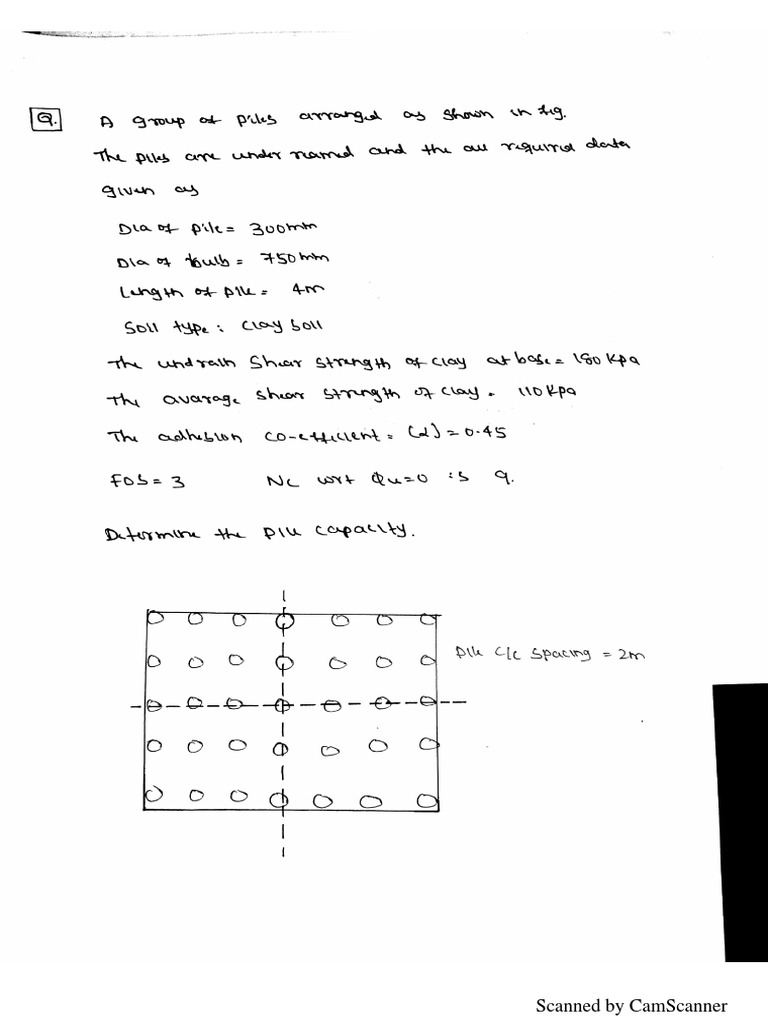 Q. A group of piles arranged as shown in fig.
The piles are under reamed and the all required data
given as
Dia of pile = 300mm
Dia of bulb = 750mm
Length of pile = 4m
Soil type : clay soil
The undrain shear strength of clay at base = 180 Kpa
The avarage shear strength of clay = 110 Kpa
The adhesion co-efficient = (α) = 0.45
FOS = 3 Nc wrt Φu=0 is 9.
Determine the pile capacity.
pile c/c spacing = 2m
Scanned by CamScanner